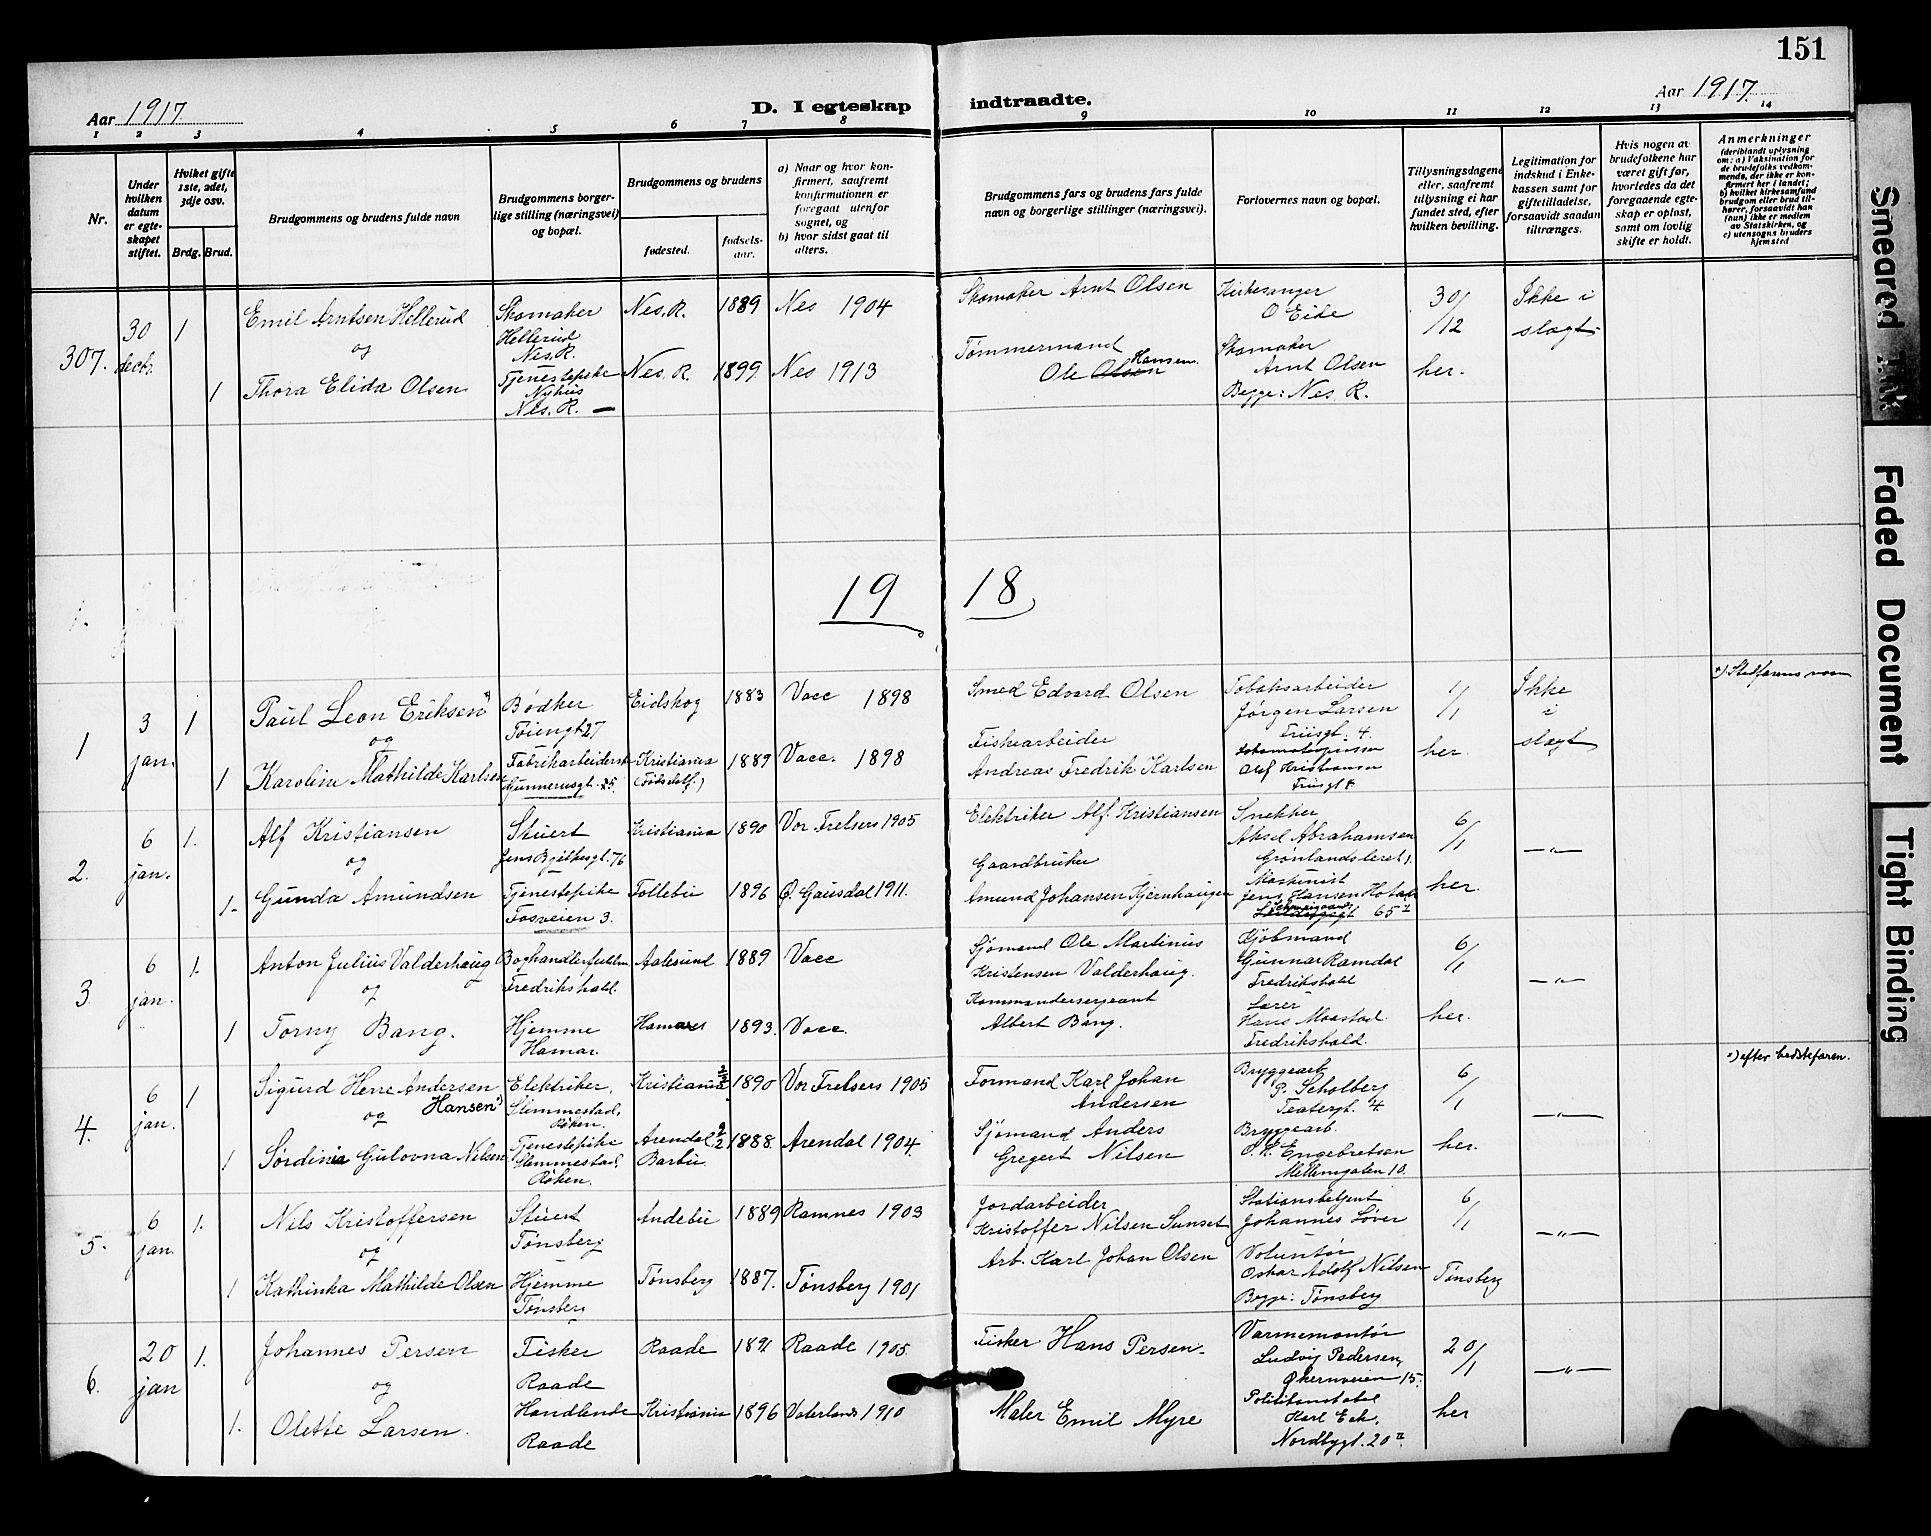 151
Aar 1917
D. I egteskap indtraadte.
Aar 1917.
1 2 3 4 5 6 7 8 9 10 11 12 13 14
Nr.
Under
hvilken
datum
er egte-
skapet
stiftet.
Hvilket gifte
1ste, 2det,
3dje osv.
Brdg. Brud.
Brudgommens og brudens fulde navn
Brudgommens borger-
lige stilling (næringsvei)
og bopæl.
Brudgommens og brudens
fødested.
fødsels-
aar.
a) Naar og hvor kon-
firmert, saafremt
konfirmationen er
foregaat utenfor
sognet, og
b) hvor sidst gaat til
alters.
Brudgommens fars og brudens fars fulde
navn og borgerlige stillinger (næringsvei).
Forlovernes navn og bopæl.
Tillysningsdagene
eller, saafremt
tillysning ei har
fundet sted, efter
hvilken bevilling.
Legitimation for
indskud i Enke-
kassen samt for
giftetilladelse,
forsaavidt saadan
tiltrænges.
Hvis nogen av
brudefolkene har
været gift før,
hvorledes da det
foregaaende egte-
skap er opløst,
samt om lovlig
skifte er holdt.
Anmerkninger
(deriblandt oplysning
om: a) Vaksination for
de brudefolks vedkom-
mende, der ikke er kon-
firmert her i landet;
b) hvilket kirkesamfund
brudgom eller brud til-
hører, forsaavidt han
(hun) ikke er medlem
av Statskirken, og
c) utensogns bruders
hjemsted
307.
30
decbr.
1
Emil Arntsen Hellerud
og
1
Thora Elida Olsen
Skomaker
Hellerud
Nes. R.
Tjenestepike
Nyhus
Nes. R. —
Nes. R. 1889 Nes 1904
Nes. R. 1899 Nes 1913
Skomaker Arnt Olsen
Tømmermand
Hansen.
Ole Olsen
Kirkesanger
O Eide
Skomaker
Arnt Olsen
Begge: Nes R.
30/
/12
her.
Ikke i
slægt
19 18
1
3
jan.
1
Paul Leon Eriksen
og
1
Karolina Mathilde Karlsen
Bødker
Tøiengt 27
Fabrikarbeiderske
Gunnerusgt. 25.
Eidskog 1883 Vacc 1898
Kristiania 1889 Vacc. 1898
(Fødselsst.)
Smed Edvard Olsen
Fiskearbeider
Andreas Fredrik Karlsen
Tobaksarbeider
Jørgen Larsen
Friisgt. 4.
Olaf Kristiansen
Friisgt 8
1/
/1
her.
Ikke
i
slægt
*) Stedfarens navn
2.
6
jan.
1.
Alf Kristiansen
og
1.
Gunda Amundsen
Stuert
Jens Bjelkesgt. 76
Tjenestepike
Fosveien 3.
Kristiania 1890 Vor Frelsers 1905
Follebu 1896 Ø. Gausdal 1911.
Elektriker Alf. Kristiansen
Gaardbruker
Amund Johansen Kjernhaugen
Snekker
Aksel Abrahamsen
Grønlandsleret 1.
Maskinist
Jens Hansen
65
6
/1
her.
—"—
3
6
jan.
1.
Anton Julius Valderhaug
og
1
Torny Bang.
Fredrikshald.
Hjemme
Hamar.
Aalesund 1889 Vacc
Hamar 1893. Vacc.
Sjømand Ole Martinus
Kristensen Valderhaug.
Kommandersergeant
Albert Bang.
Kjøbmand
Gunnar Ramdal
Fredrikshald
Lærer
Hans Maastad.
Fredrikshald.
6/
/1
her.
—"—
4.
6
jan.
1
Sigurd Herre Andersen
og Hansen
1
Sørdinia Gulovna Nilsen
Elektriker,
Slemmestad,
Røken.
Tjenestepike
Slemmestad,
Røken.
Kristiania 1890 Vor Frelsers 1905
Arendal 9/2 1888 Arendal 1904.
Barbu.
Formand Karl Johan
Andersen
Sjømand Anders
Gregert Nilsen
Bryggearb
P. Scholberg
Teatergt. 4.
Bryggearb.
O. K. Engebretsen
Mellemgaten 10.
6
/1
her.
—"—
") efter bedstefaren.
5.
6
jan.
1.
Nils Kristoffersen
og
1
Kathinka Mathilde Olsen
Stuert
Tønsberg
Hjemme
Tønsberg
Andebu 1889 Ramnes 1903
Tønsberg 1887. Tønsberg 1901
Jordarbeider
Kristoffer Nilsen Sunset
Arb. Karl Johan Olsen
Stationsbetjent
Johannes Løver
Voluntør
Oskar Adolf Nilsen
Begge: Tønsberg
6
/1
Tønsberg
—"—
6.
20
jan
1.
Johannes Persen
og
1.
Olette Larsen.
Fisker
Raade
Handlende
Raade
Raade 1891 Raade 1905.
Kristiania 1896 Vaterlands 1910
Fisker Hans Persen.
Maler Emil Myre
Varmemontør
Ludvig Pedersen,
Økernveien 15.
Politikonstabel
Karl Eek,
Nordbygt. 20
20/
/1
her
—"—
Smeared Ink
Faded Document
Tight Binding